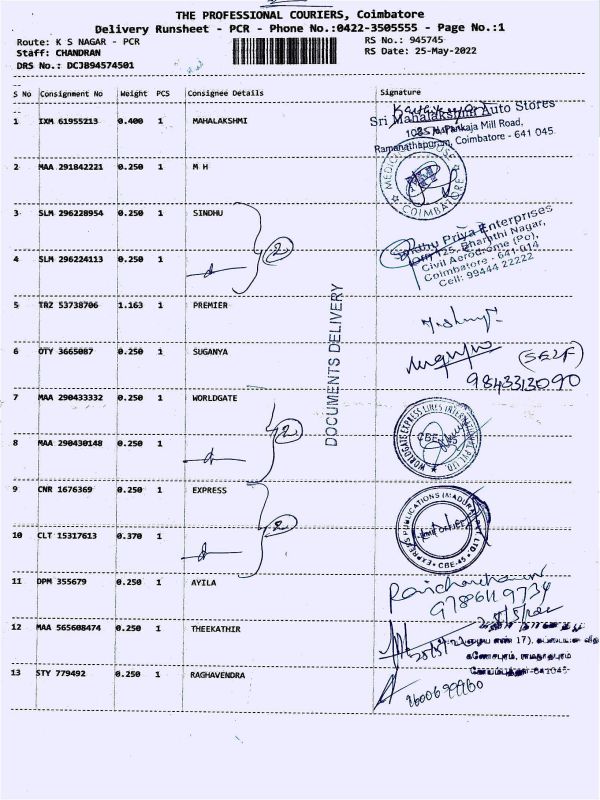 THE PROFESSIONAL COURIERS, Coimbatore
Delivery Runsheet - PCR - Phone No.:0422-3505555 - Page No.:1
Route: K S NAGAR - PCR RS No.: 945745
Staff: CHANDRAN RS Date: 25-May-2022
DRS No.: DCJB94574501
S No Consignment No Weight PCS Consignee Details Signature
1 IXM 61955213 0.400 1 MAHALAKSHMI
Sri Mahalakshmi Auto Stores
Pankaja Mill Road,
Ramanathapuram, Coimbatore - 641 045.
2 MAA 291842221 0.250 1 M H
COIMBATORE
3 SLM 296228954 0.250 1 SINDHU
2
Priya Enterprises
125, Bharathi Nagar,
Civil Aerodrome (Po),
Coimbatore - 641 014
Cell: 99444 22222
4 SLM 296224113 0.250 1
DOCUMENTS DELIVERY
5 TRZ 53738706 1.163 1 PREMIER
6 OTY 3665087 0.250 1 SUGANYA
(SELF)
9843313090
7 MAA 290433332 0.250 1 WORLDGATE
2
WORLDGATE EXPRESS LINES INTERNATIONAL PVT. LTD.
CBE-45
8 MAA 290430148 0.250 1
9 CNR 1676369 0.250 1 EXPRESS
2
EXPRESS PUBLICATIONS (MADURAI) PVT LTD
CBE-45
10 CLT 15317613 0.370 1
11 DPM 355679 0.250 1 AYILA
9786119734
12 MAA 565608474 0.250 1 THEEKATHIR
கணேசபுரம், ராமநாதபுரம்
கோயம்புத்தூர்-641045
13 STY 779492 0.250 1 RAGHAVENDRA
9600699960